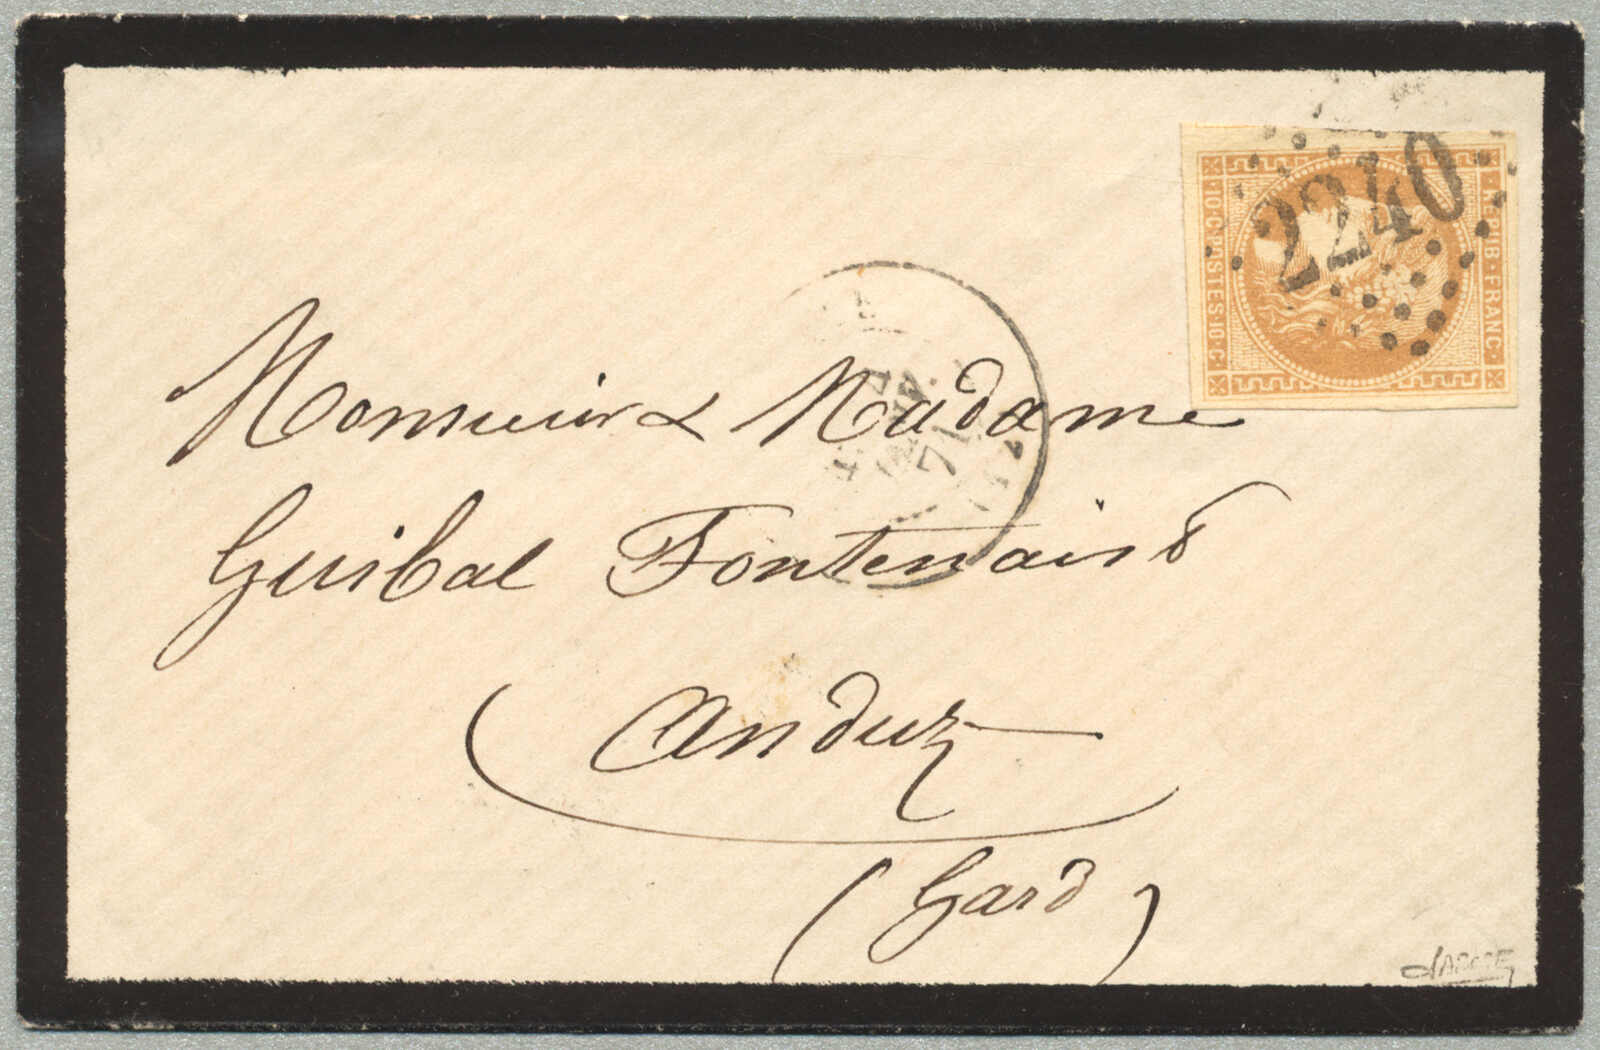 2240
REPUB·FRANC·
·10·C·POSTES·10·C·
71
Monsieur & Madame
Guibal Fontenais
Anduz
(Gard)